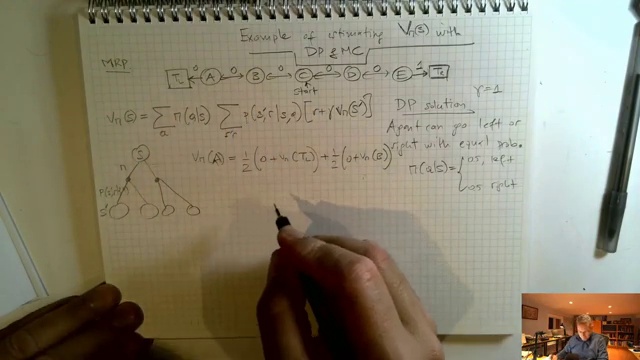 Example of estimating Vπ(s) with
DP & MC
MRP
TL 0 A 0 B 0 C 0 D 0 E 1 TR
start
Vπ(s) = ∑a π(a|s) ∑s',r p(s',r|s,a) [r+γ Vπ(s')]
DP solution γ=1
Agent can go left or
right with equal prob.
π(a|s) = { 0.5, left
0.5 right
Vπ(A) = 1/2 (0 + Vπ(TL)) + 1/2 (0 + Vπ(B))
(S)
π
S'